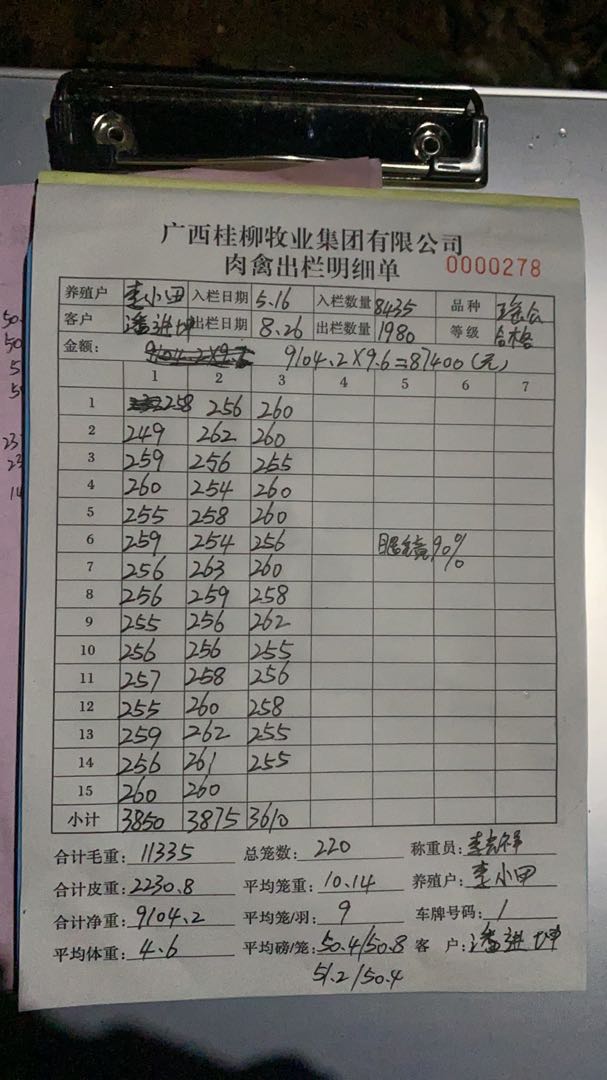 广西桂柳牧业集团有限公司
肉禽出栏明细单 0000278
养殖户 李小田 入栏日期 5.16 入栏数量 8435 品种
客户 出栏日期 8.26 出栏数量 1980 等级 合格
金额: 9104.2×9.6 9104.2×9.6=87400(元)
1 2 3 4 5 6 7
1 258 256 260
2 249 262 260
3 259 256 255
4 260 254 260
5 255 258 260
6 259 254 256 眼镜90%
7 256 263 260
8 256 259 258
9 255 256 262
10 256 256 255
11 257 258 256
12 255 260 258
13 259 262 255
14 256 261 255
15 260 260
小计 3850 3875 3610
合计毛重: 11335 总笼数: 220 称重员:
合计皮重: 2230.8 平均笼重: 10.14 养殖户: 李小田
合计净重: 9104.2 平均笼/羽: 9 车牌号码: 1
平均体重: 4.6 平均磅/笼: 50.4/50.8 客户:
51.2/50.4